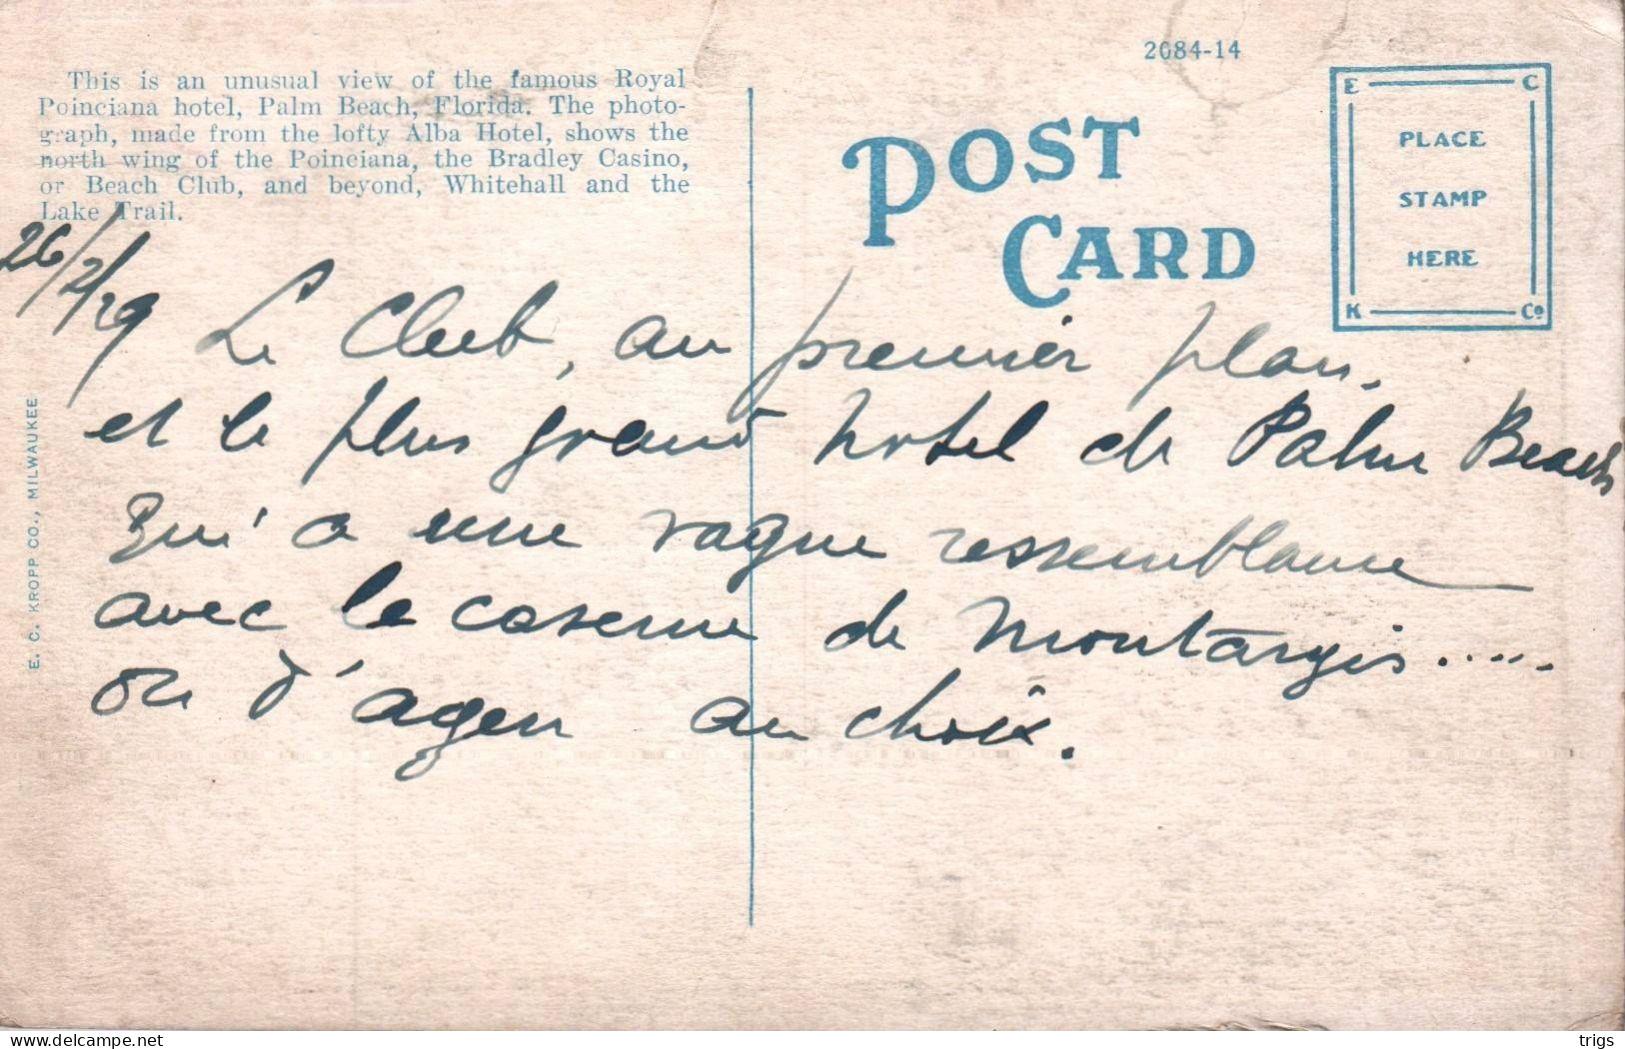 2084-14
This is an unusual view of the famous Royal
Poinciana hotel, Palm Beach, Florida. The photo-
graph, made from the lofty Alba Hotel, shows the
north wing of the Poinciana, the Bradley Casino,
or Beach Club, and beyond, Whitehall and the
Lake Trail.
POST
CARD
E C
PLACE
STAMP
HERE
K Co
26/2/29
Le Club, au premier plan,
et le plus grand hotel de Palm Beach
qui a une vague ressemblance
avec la caserne de Montargis.....
ou d'agen au choix.
E. C. KROPP CO., MILWAUKEE
delcampe.net
trigs